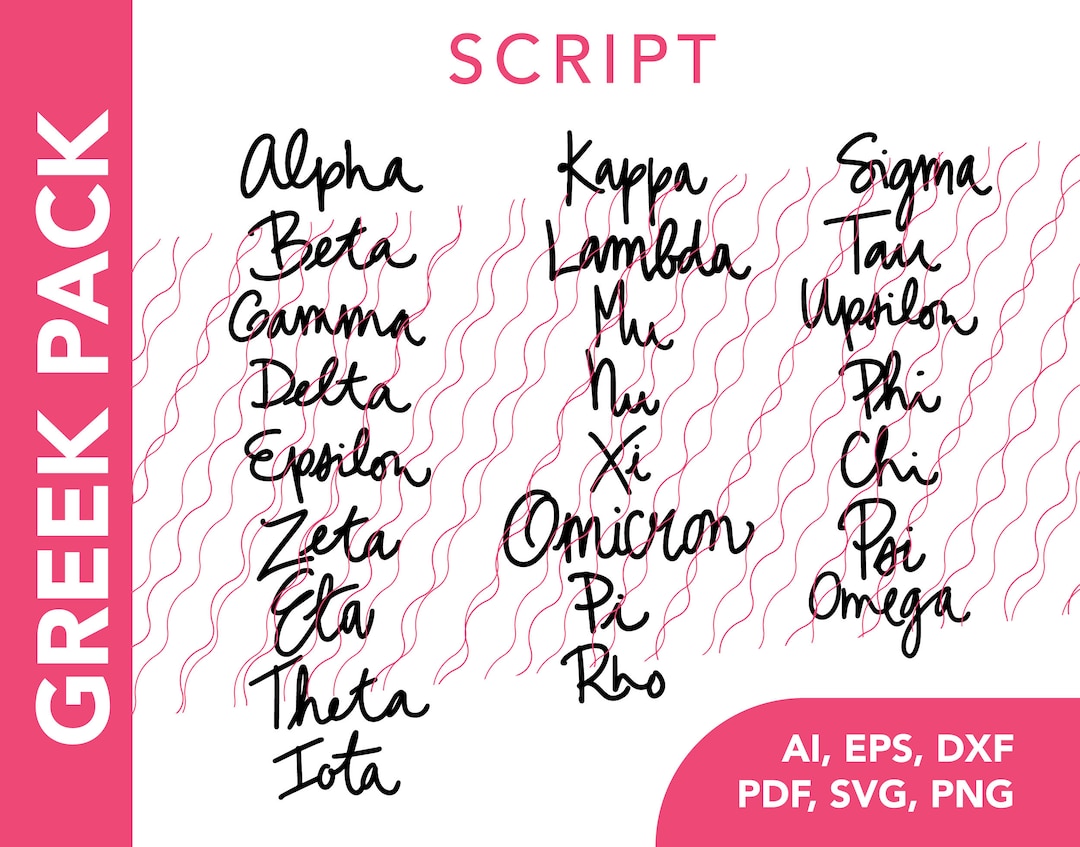 GREEK PACK
SCRIPT
Alpha
Beta
Gamma
Delta
Epsilon
Zeta
Eta
Theta
Iota
Kappa
Lambda
Mu
Nu
Xi
Omicron
Pi
Rho
Sigma
Tau
Upsilon
Phi
Chi
Psi
Omega
AI, EPS, DXF
PDF, SVG, PNG